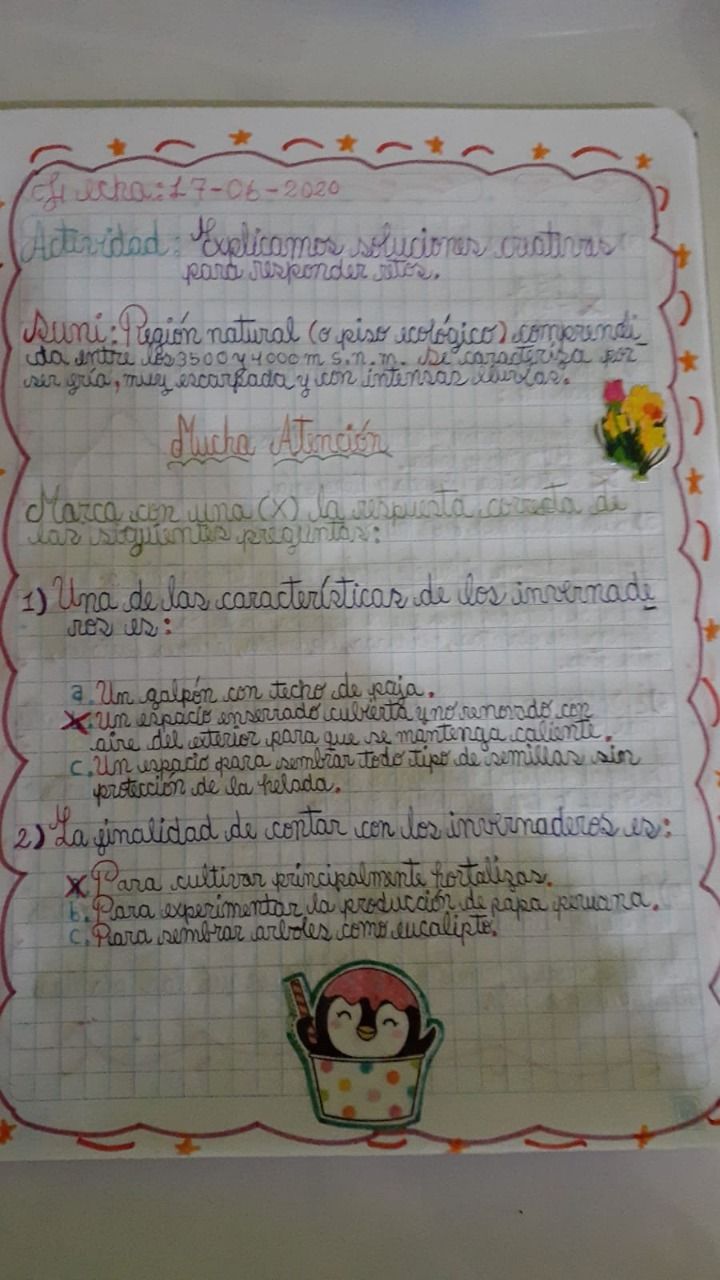 Fecha: 17-06-2020
Actividad: Explicamos soluciones creativas
para responder retos.
Suni: Región natural (o piso ecológico) comprendi_
da entre los 3500 y 4000 m s.n.m. Se caracteriza por
ser fría, muy escarpada y con intensas lluvias.
Mucha Atención
Marca con una (X) la respuesta correcta de
las siguientes preguntas:
1) Una de las características de los invernade_
ros es:
a. Un galpón con techo de paja.
X. Un espacio enserrado cubierta y no renovado con
aire del exterior para que se mantenga caliente.
c. Un espacio para sembrar todo tipo de semillas sin
protección de la helada.
2) La finalidad de contar con los invernaderos es:
X Para cultivar principalmente hortalizas.
b. Para experimentar la producción de papa peruana.
c. Para sembrar arboles como eucalipto.